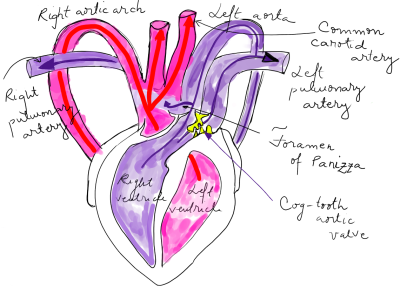 Right aortic arch
Left aorta
Common
carotid
artery
Left
pulmonary
artery
Right
pulmonary
artery
Foramen
of Panizza
Right
ventricle
Left
ventricle
Cog-tooth
aortic
valve